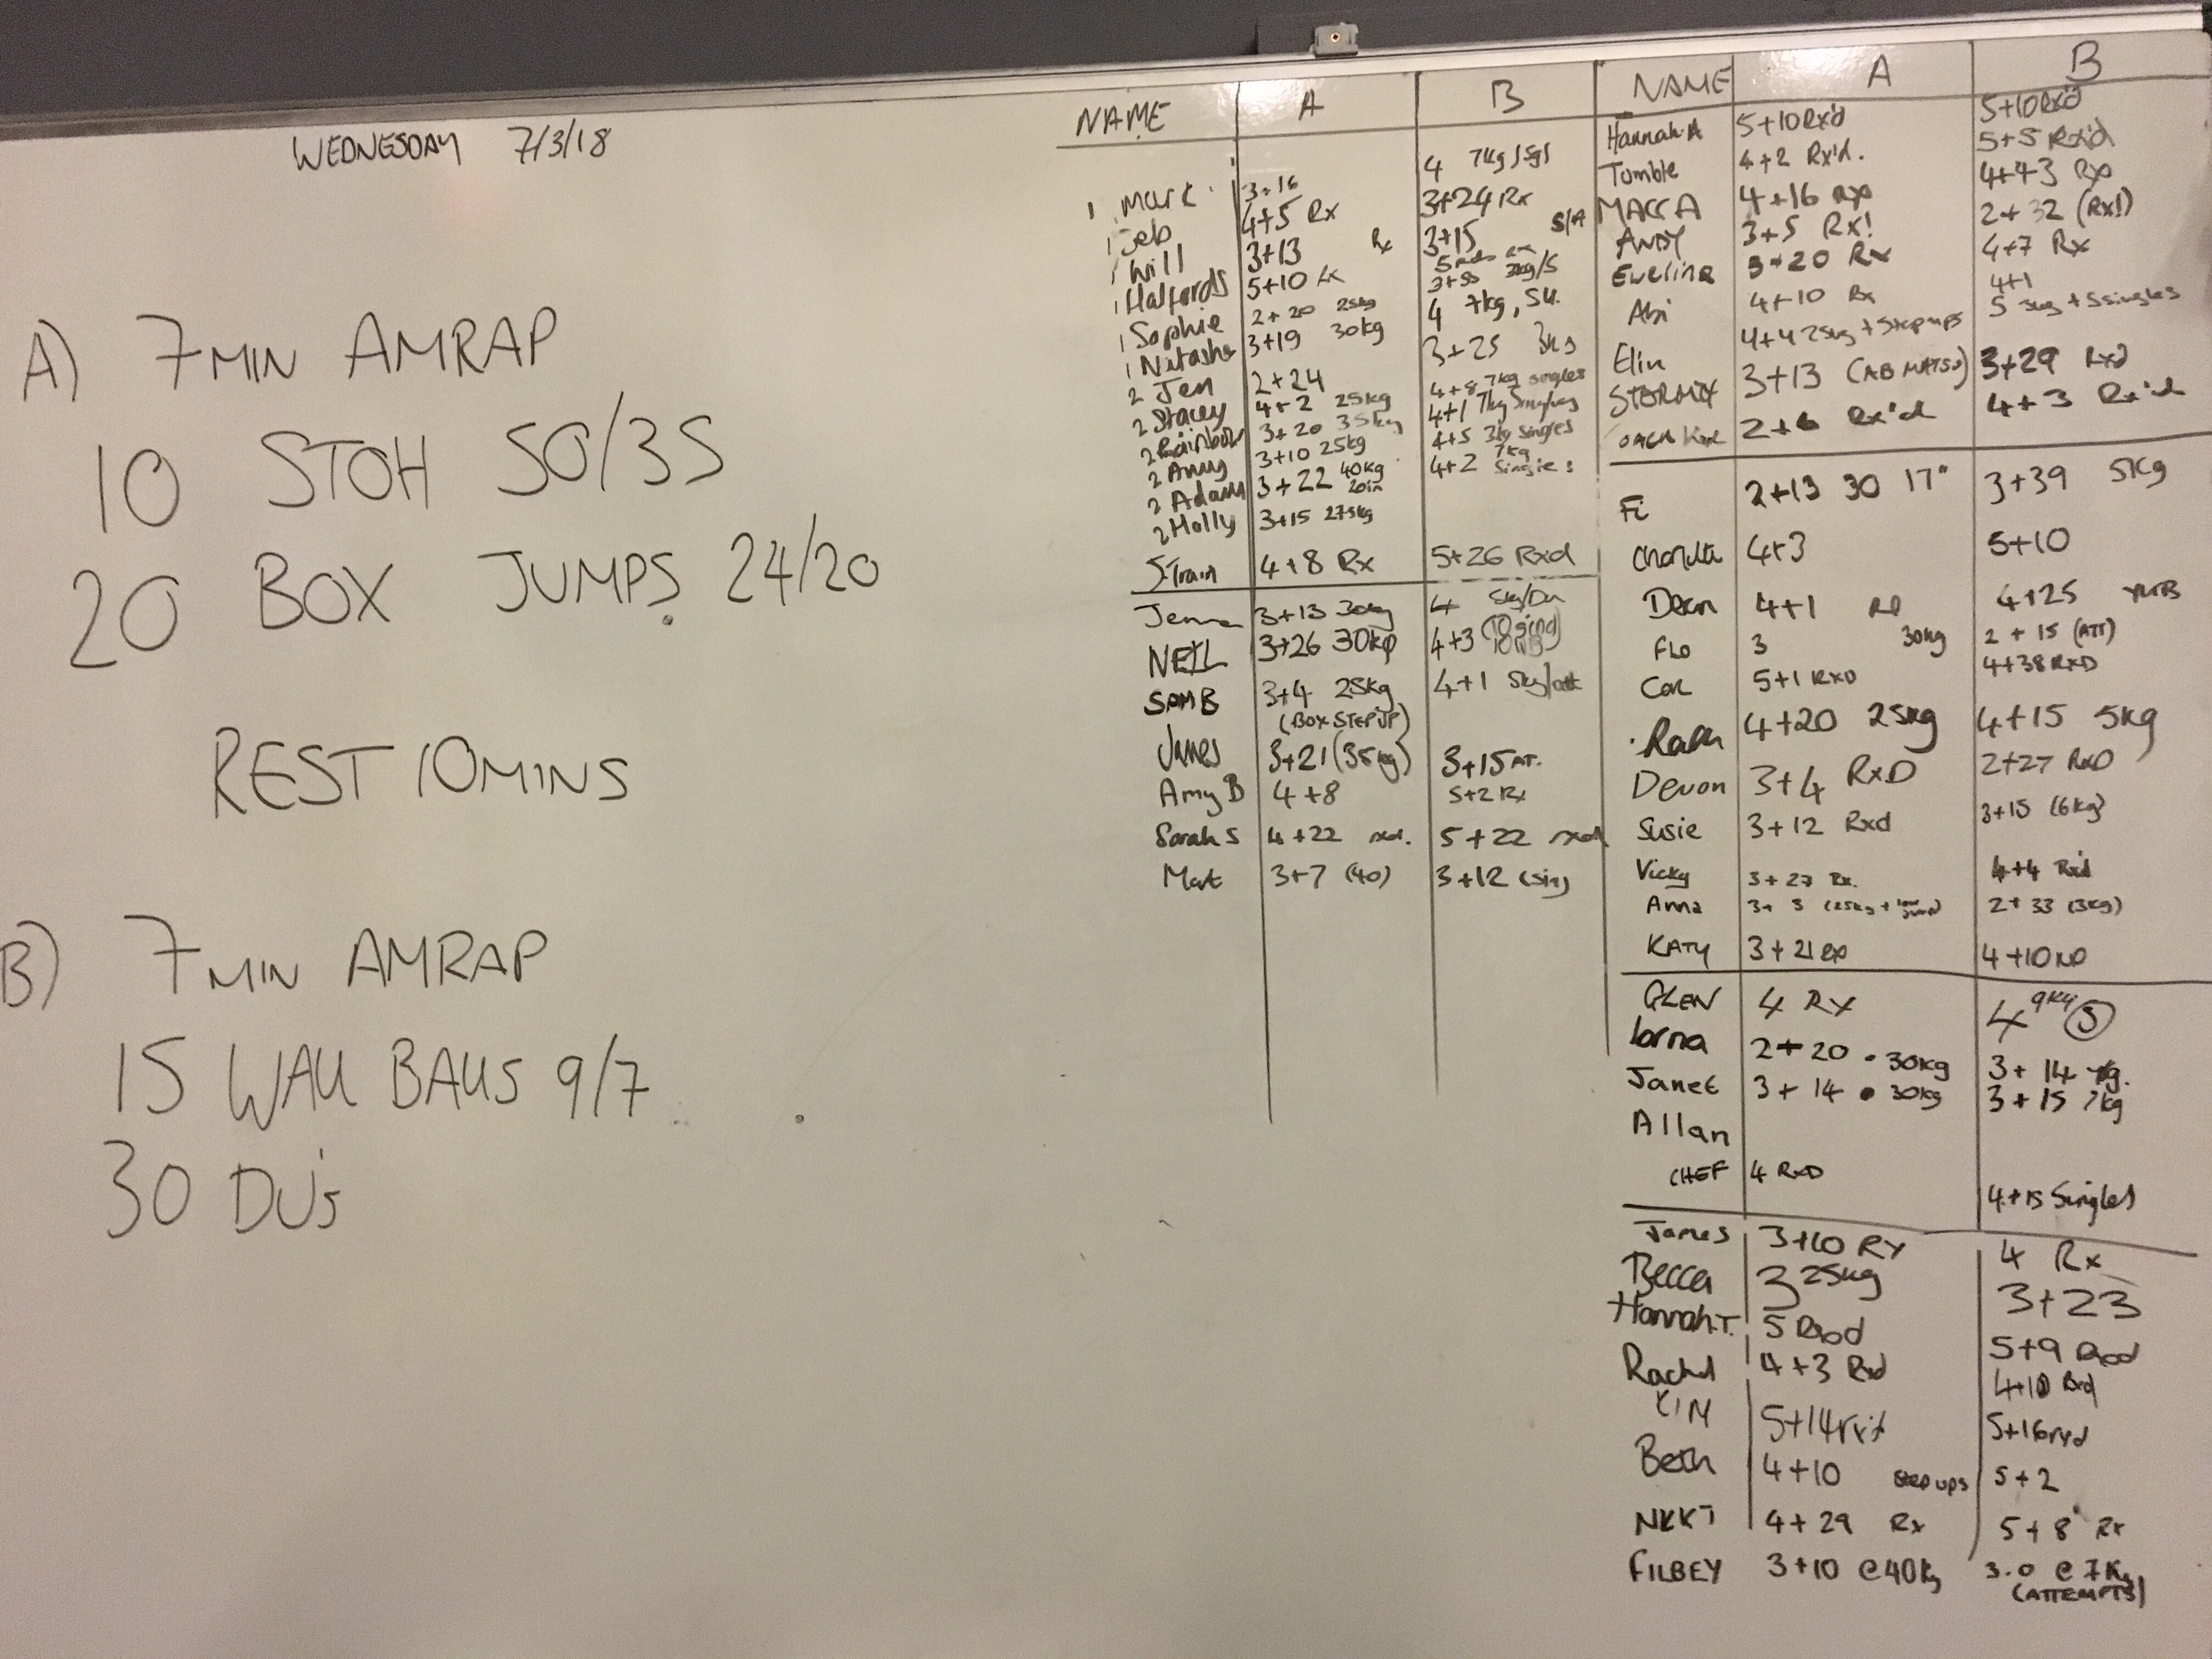 WEDNESDAY 7/3/18
A) 7 MIN AMRAP
10 STOH 50/35
20 BOX JUMPS 24/20
REST 10 MINS
B) 7 MIN AMRAP
15 WALL BALLS 9/7
30 DU's
NAME A B
1 Mark 3+16 4 7kg/sgl
1 Jeb 4+5 Rx 3+24 Rx
1 Will 3+13 Rx 3+15 S/A
1 Halfords 5+10 Rx
1 Sophie 2+20 25kg 4 7kg, SU.
1 Natasha 3+19 30kg 3+25 3kg
2 Jen 2+24 4+8 7kg singles
2 Stacey 4+2 25kg 4+1 7kg
2 Rainbow 3+20 35kg 4+5 3kg singles
2 Amy 3+10 25kg 4+2 7kg singles
2 Adam 3+22 40kg 20in
2 Holly 3+15 27.5kg
J-Train 4+8 Rx 5+26 Rxd
Jenna 3+13 30kg 4 5kg/Du
NEIL 3+26 30kg 4+3
SAM B 3+4 25kg 4+1 5kg/att
(BOX STEP UP)
James 3+21 (35kg) 3+15 AT.
Amy B 4+8 5+2 Rx
Sarah S 4+22 rxd. 5+22 rxd
Mat 3+7 (40) 3+12 (sin)
NAME A B
Hannah A 5+10 Rx'd 5+10 Rx'd
Tumble 4+2 Rx'd. 5+5 Rx'd
MACCA 4+16 Rx 4+43 Rx
ANDY 3+5 Rx! 2+32 (Rx!)
Evelina 3+20 Rx 4+7 Rx
Abi 4+10 Rx 4+1
Elin 4+4 25kg + Stepups 5 3kg + Ssingles
STORMIX 3+13 (AB MATS) 3+29 Rxd
2+6 Rx'd 4+3 Rx'd
Fi 2+13 30 17" 3+39 5kg
4+3 5+10
Dean 4+1 4+25
FLO 3 30kg 2+15 (ATT)
5+1 RXD 4+38 RXD
4+20 25kg 4+15 5kg
Devon 3+4 RxD 2+27 RxD
Susie 3+12 Rxd 3+15 (6kg)
Vicky 3+27 Rx. 4+4 Rx'd
Anna 3+3 (25kg + low jump) 2+33 (3kg)
KATY 3+21 RX 4+10
GLEN 4 RX 4 9kg S
Lorna 2+20 . 30kg 3+14
Janet 3+14 . 30kg 3+15 7kg
Allan
CHEF 4 RXD 4+15 Singles
James 3+10 RX 4 Rx
Becca 3 25kg 3+23
Hannah.T. 5 Rxd 5+9 Rxd
Rachel 4+3 Rxd 4+10 Rxd
KIM 5+14 rxd 5+16 rxd
Beth 4+10 step ups 5+2
NIKKI 4+29 Rx 5+8 Rx
FILBEY 3+10 @ 40kg 3.0 @ 7Kg
(ATTEMPTS)